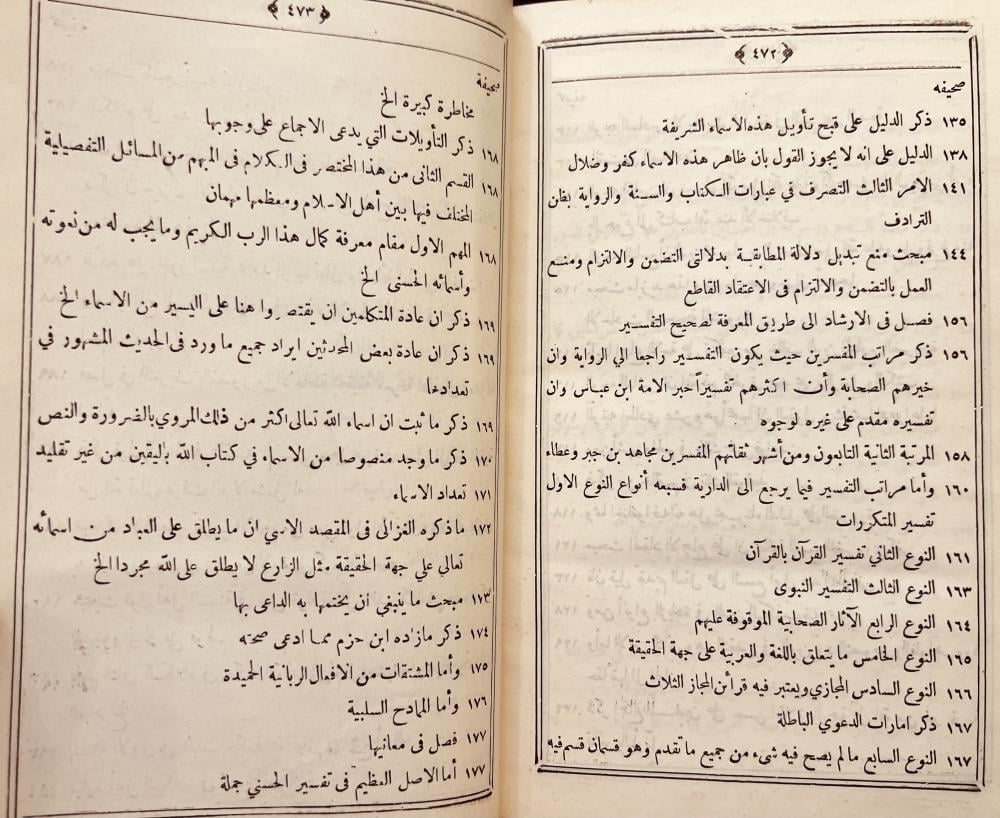 ﴿٤٧٢﴾
صحيفه
١٣٥ ذكر الدليل على قبح تأويل هذه الاسماء الشريفة
١٣٨ الدليل على انه لا يجوز القول بان ظاهر هذه الاسماء كفر وضلال
١٤١ الامر الثالث التصرف في عبارات الكتاب والسنة والرواية بظن
الترادف
١٤٤ مبحث منع تبديل دلالة المطابقة بدلالتى التضمن والالتزام ومنع
العمل بالتضمن والالتزام فى الاعتقاد القاطع
١٥٦ فصل فى الارشاد الى طريق المعرفة لصحيح التفسير
١٥٦ ذكر مراتب المفسرين حيث يكون التفسير راجعا الي الرواية وان
خيرهم الصحابة وأن اكثرهم تفسيرا حبر الامة ابن عباس وان
تفسيره مقدم على غيره لوجوه
١٥٨ المرتبة الثانية التابعون ومن أشهر ثقاتهم المفسرين مجاهد بن جبر وعطاء
١٦٠ وأما مراتب التفسير فيما يرجع الى الدارية فسبعه أنواع النوع الاول
تفسير المتكررات
١٦١ النوع الثاني تفسير القرآن بالقرآن
١٦٣ النوع الثالث التفسير النبوى
١٦٤ النوع الرابع الآثار الصحابية الموقوفة عليهم
١٦٥ النوع الخامس ما يتعلق باللغة والعربية على جهة الحقيقة
١٦٦ النوع السادس المجازي ويعتبر فيه قرأئن المجاز الثلاث
١٦٧ ذكر امارات الدعوي الباطلة
١٦٧ النوع السابع مالم يصح فيه شىء من جميع ما تقدم وهو قسمان قسم فيه
﴿٤٧٣﴾
صحيفة
مخاطرة كبيرة الخ
١٦٨ ذكر التأويلات التي يدعى الاجماع على وجوبها
١٦٨ القسم الثانى من هذا المختصر فى الكلام فى المهم من المسائل التفصيلية
المختلف فيها بين أهل الاسلام ومعظمها مهمان
١٦٨ المهم الاول مقام معرفة كمال هذا الرب الكريم وما يجب له من نعوته
وأسمائه الحسنى الخ
١٦٩ ذكر ان عادة المتكلمين ان يقتصروا هنا على اليسير من الاسماء الخ
١٦٩ ذكر ان عادة بعض المحدثين ايراد جميع ما ورد فى الحديث المشهور في
تعدادها
١٦٩ ذكر ما ثبت ان اسماء الله تعالى اكثر من ذلك المروي بالضرورة والنص
١٧٠ ذكر ما وجد منصوصا من الاسماء في كتاب الله باليقين من غير تقليد
١٧١ تعداد الاسماء
١٧٢ ما ذكره الغزالى فى المقصد الاسني ان ما يطلق على العباد من اسمائه
تعالي علي جهة الحقيقة مثل الزارع لا يطلق على الله مجردا الخ
١٧٣ مبحث ما ينبغي ان يختمها به الداعى بها
١٧٤ ذكر مازاده ابن حزم مما ادعى صحته
١٧٥ وأما المشتقات من الافعال الربانية الحميدة
١٧٦ وأما الممادح السلبية
١٧٧ فصل فى معانيها
١٧٧ أما الاصل العظيم فى تفسير الحسني جملة